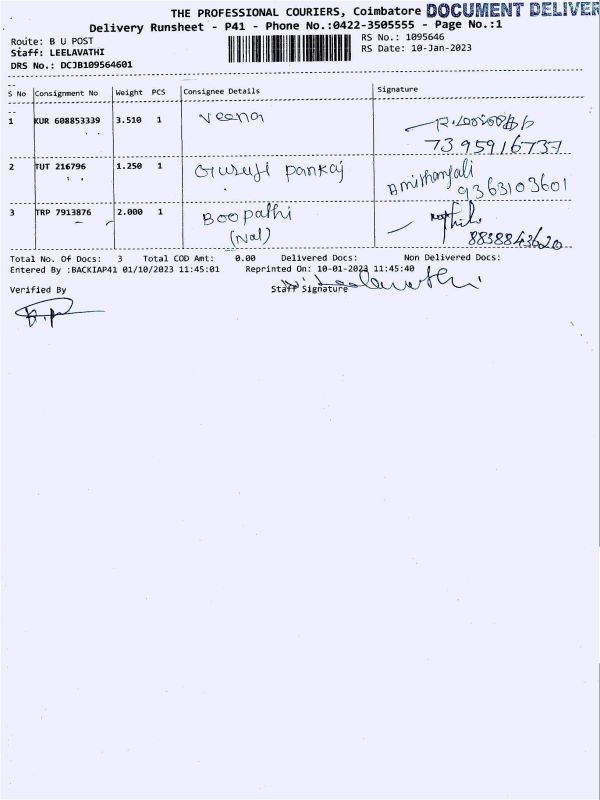 THE PROFESSIONAL COURIERS, Coimbatore DOCUMENT DELIVER
Delivery Runsheet - P41 - Phone No.:0422-3505555 - Page No.:1
Route: B U POST
Staff: LEELAVATHI
DRS No.: DCJB109564601
RS No.: 1095646
RS Date: 10-Jan-2023
S No Consignment No Weight PCS Consignee Details Signature
1 KUR 608853339 3.510 1 Veena
7395916737
2 TUT 216796 1.250 1 Guruji Pankaj
9363103601
3 TRP 7913876 2.000 1 Boopathi
(Nal)
8838843620
Total No. Of Docs: 3 Total COD Amt: 0.00 Delivered Docs: Non Delivered Docs:
Entered By :BACKIAP41 01/10/2023 11:45:01 Reprinted On: 10-01-2023 11:45:40
Verified By Staff Signature